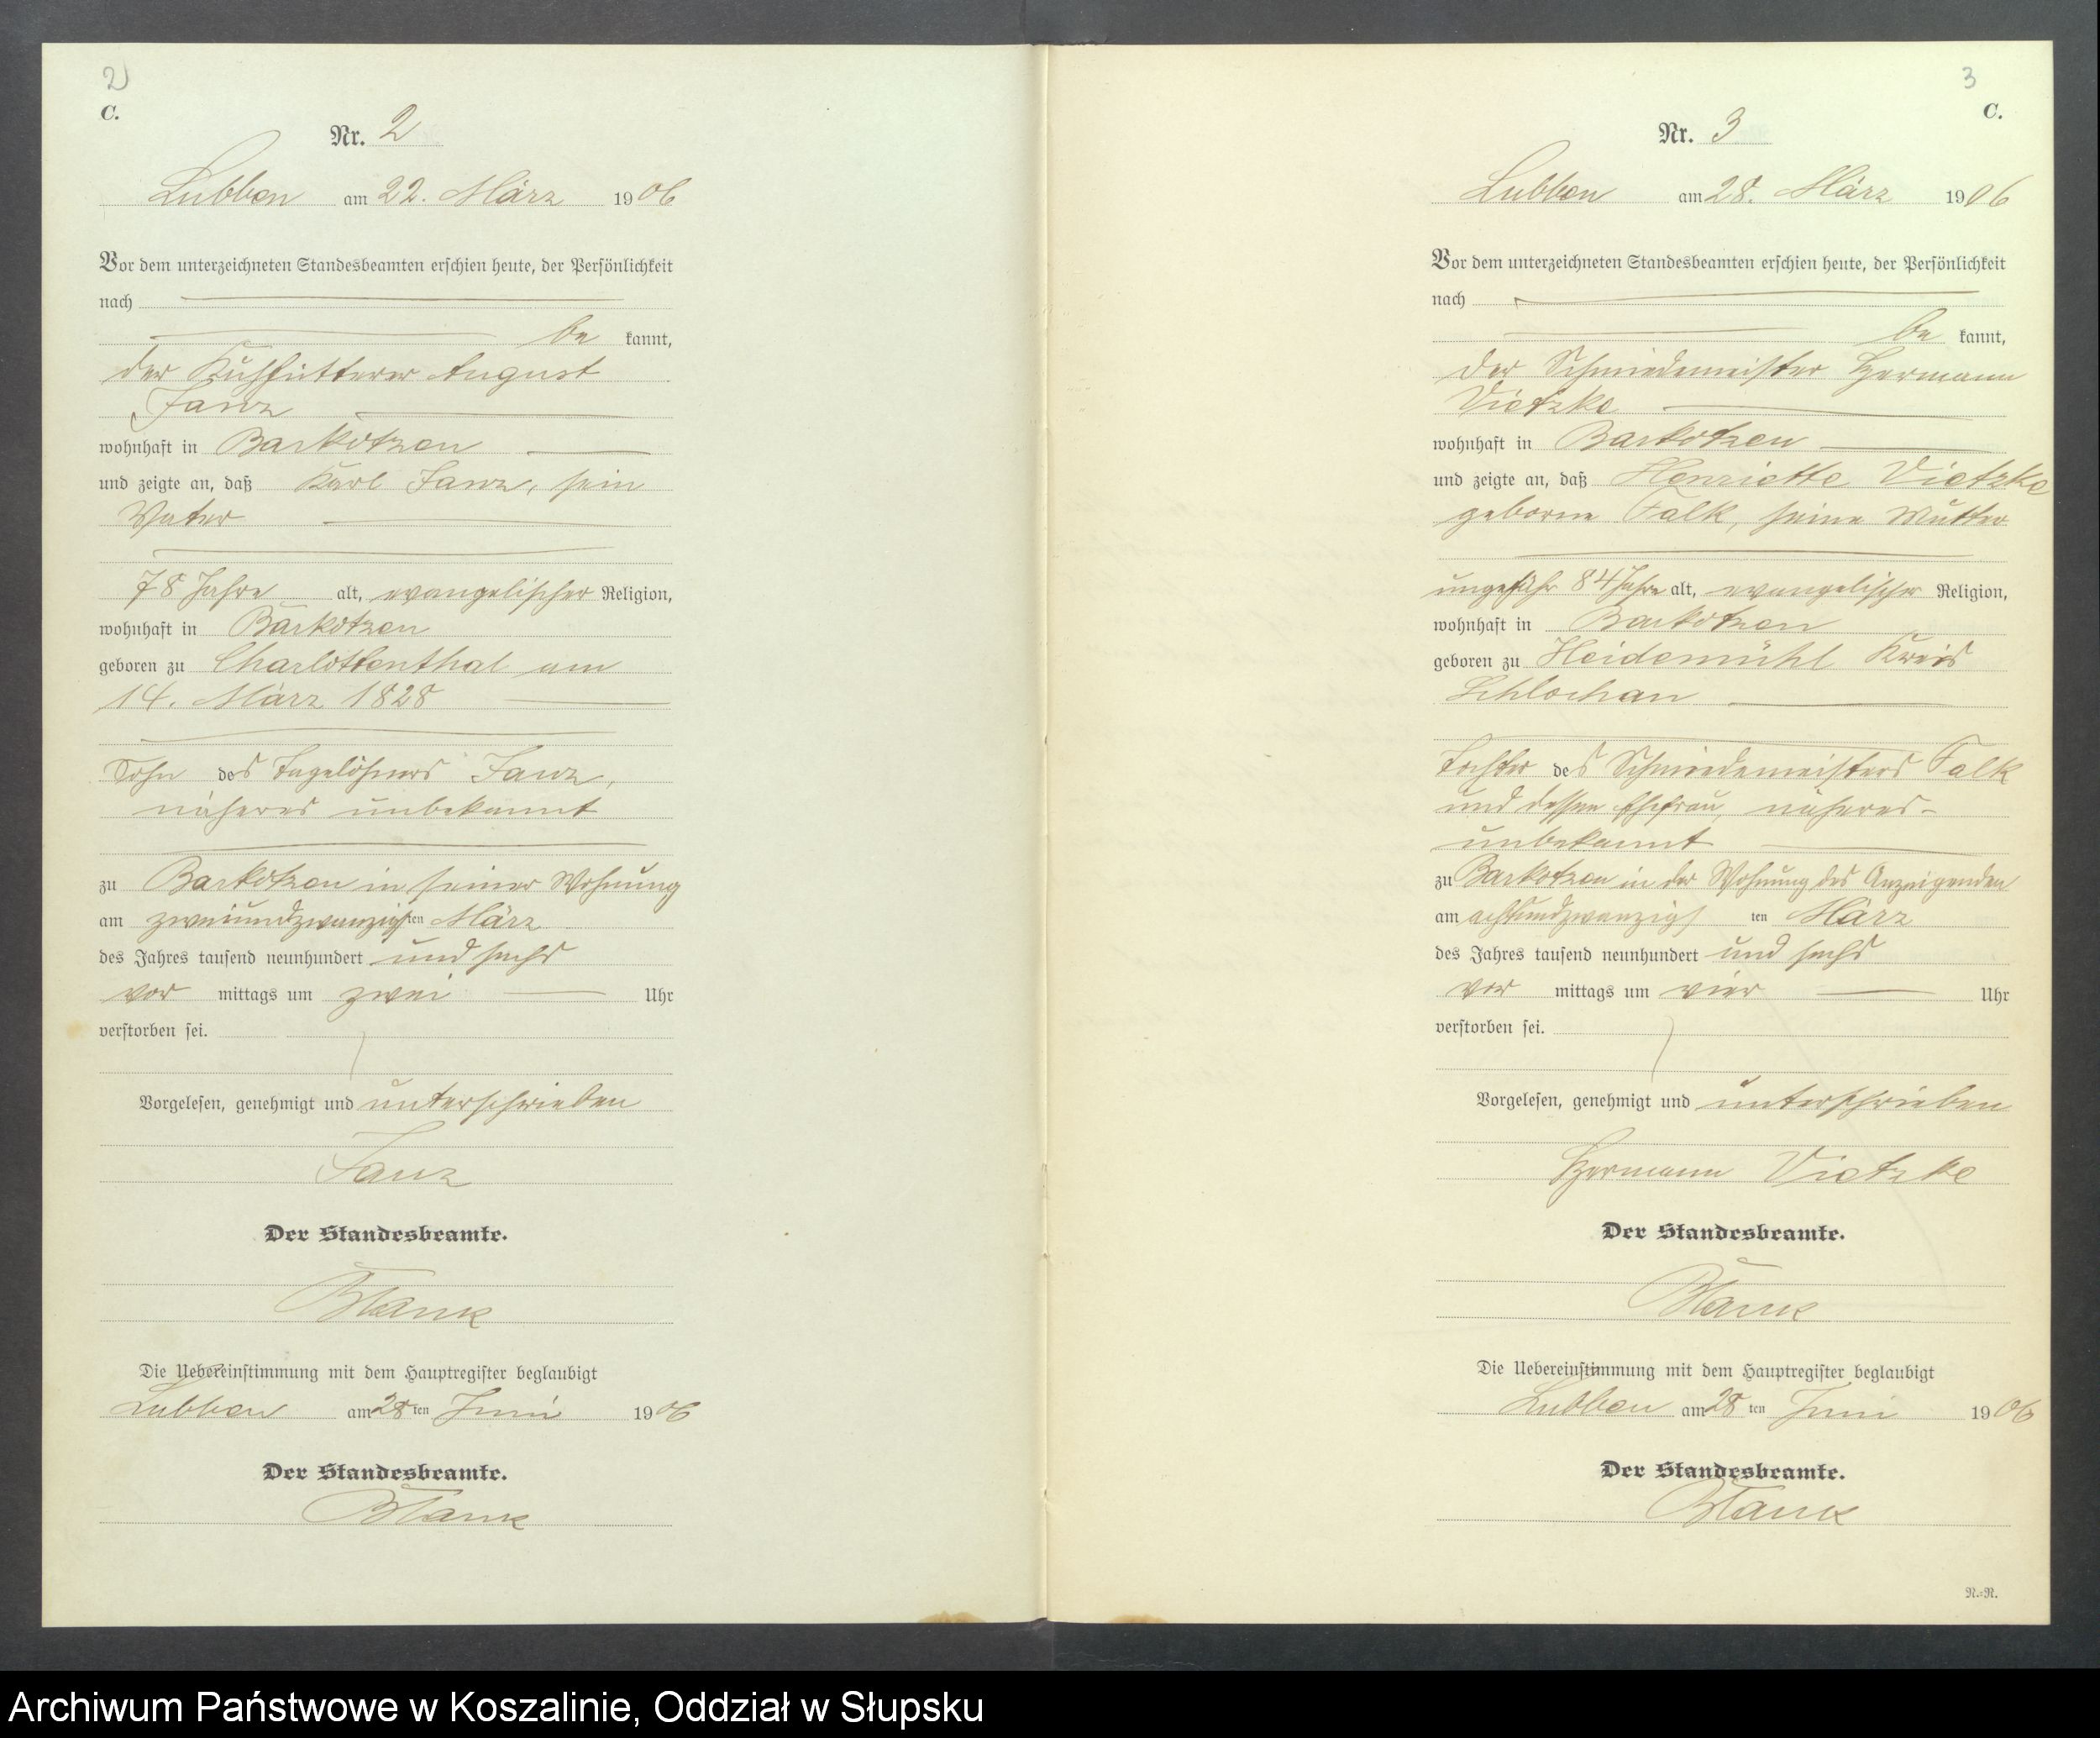 2
C.
Nr. 2
Lubben am 22. März 1906
Vor dem unterzeichneten Standesbeamten erschien heute, der Persönlichkeit
nach
be kannt,
der Kuhfütterer August
Janz
wohnhaft in Barkotzen
und zeigte an, daß Karl Janz, sein
Vater
78 Jahre alt, evangelischer Religion,
wohnhaft in Barkotzen
geboren zu Charlottenthal am
14. März 1828
Sohn des Tagelöhners Janz,
näheres unbekannt
zu Barkotzen in seiner Wohnung
am zweiundzwanzigsten März
des Jahres tausend neunhundert und sechs
vor mittags um zwei Uhr
verstorben sei.
Vorgelesen, genehmigt und unterschrieben
Janz
Der Standesbeamte.
Die Uebereinstimmung mit dem Hauptregister beglaubigt
Lubben am 28 ten Juni 1906
Der Standesbeamte.
3
C.
Nr. 3
Lubben am 28. März 1906
Vor dem unterzeichneten Standesbeamten erschien heute, der Persönlichkeit
nach
be kannt,
der Schmiedemeister Hermann
Vietzke
wohnhaft in Barkotzen
und zeigte an, daß Henriette Vietzke
geborne Falk, seine Mutter
ungefähr 84 Jahre alt, evangelischer Religion,
wohnhaft in Barkotzen
geboren zu Heidemühl Kreis
Schlochau
Tochter des Schmiedemeisters Falk
und dessen Ehefrau, näheres
unbekannt
zu Barkotzen in der Wohnung des Anzeigenden
am achtundzwanzigs ten März
des Jahres tausend neunhundert und sechs
vor mittags um vier Uhr
verstorben sei.
Vorgelesen, genehmigt und unterschrieben
Hermann Vietzke
Der Standesbeamte.
Die Uebereinstimmung mit dem Hauptregister beglaubigt
Lubben am 28 ten Juni 1906
Der Standesbeamte.
N.=N.
Archiwum Państwowe w Koszalinie, Oddział w Słupsku